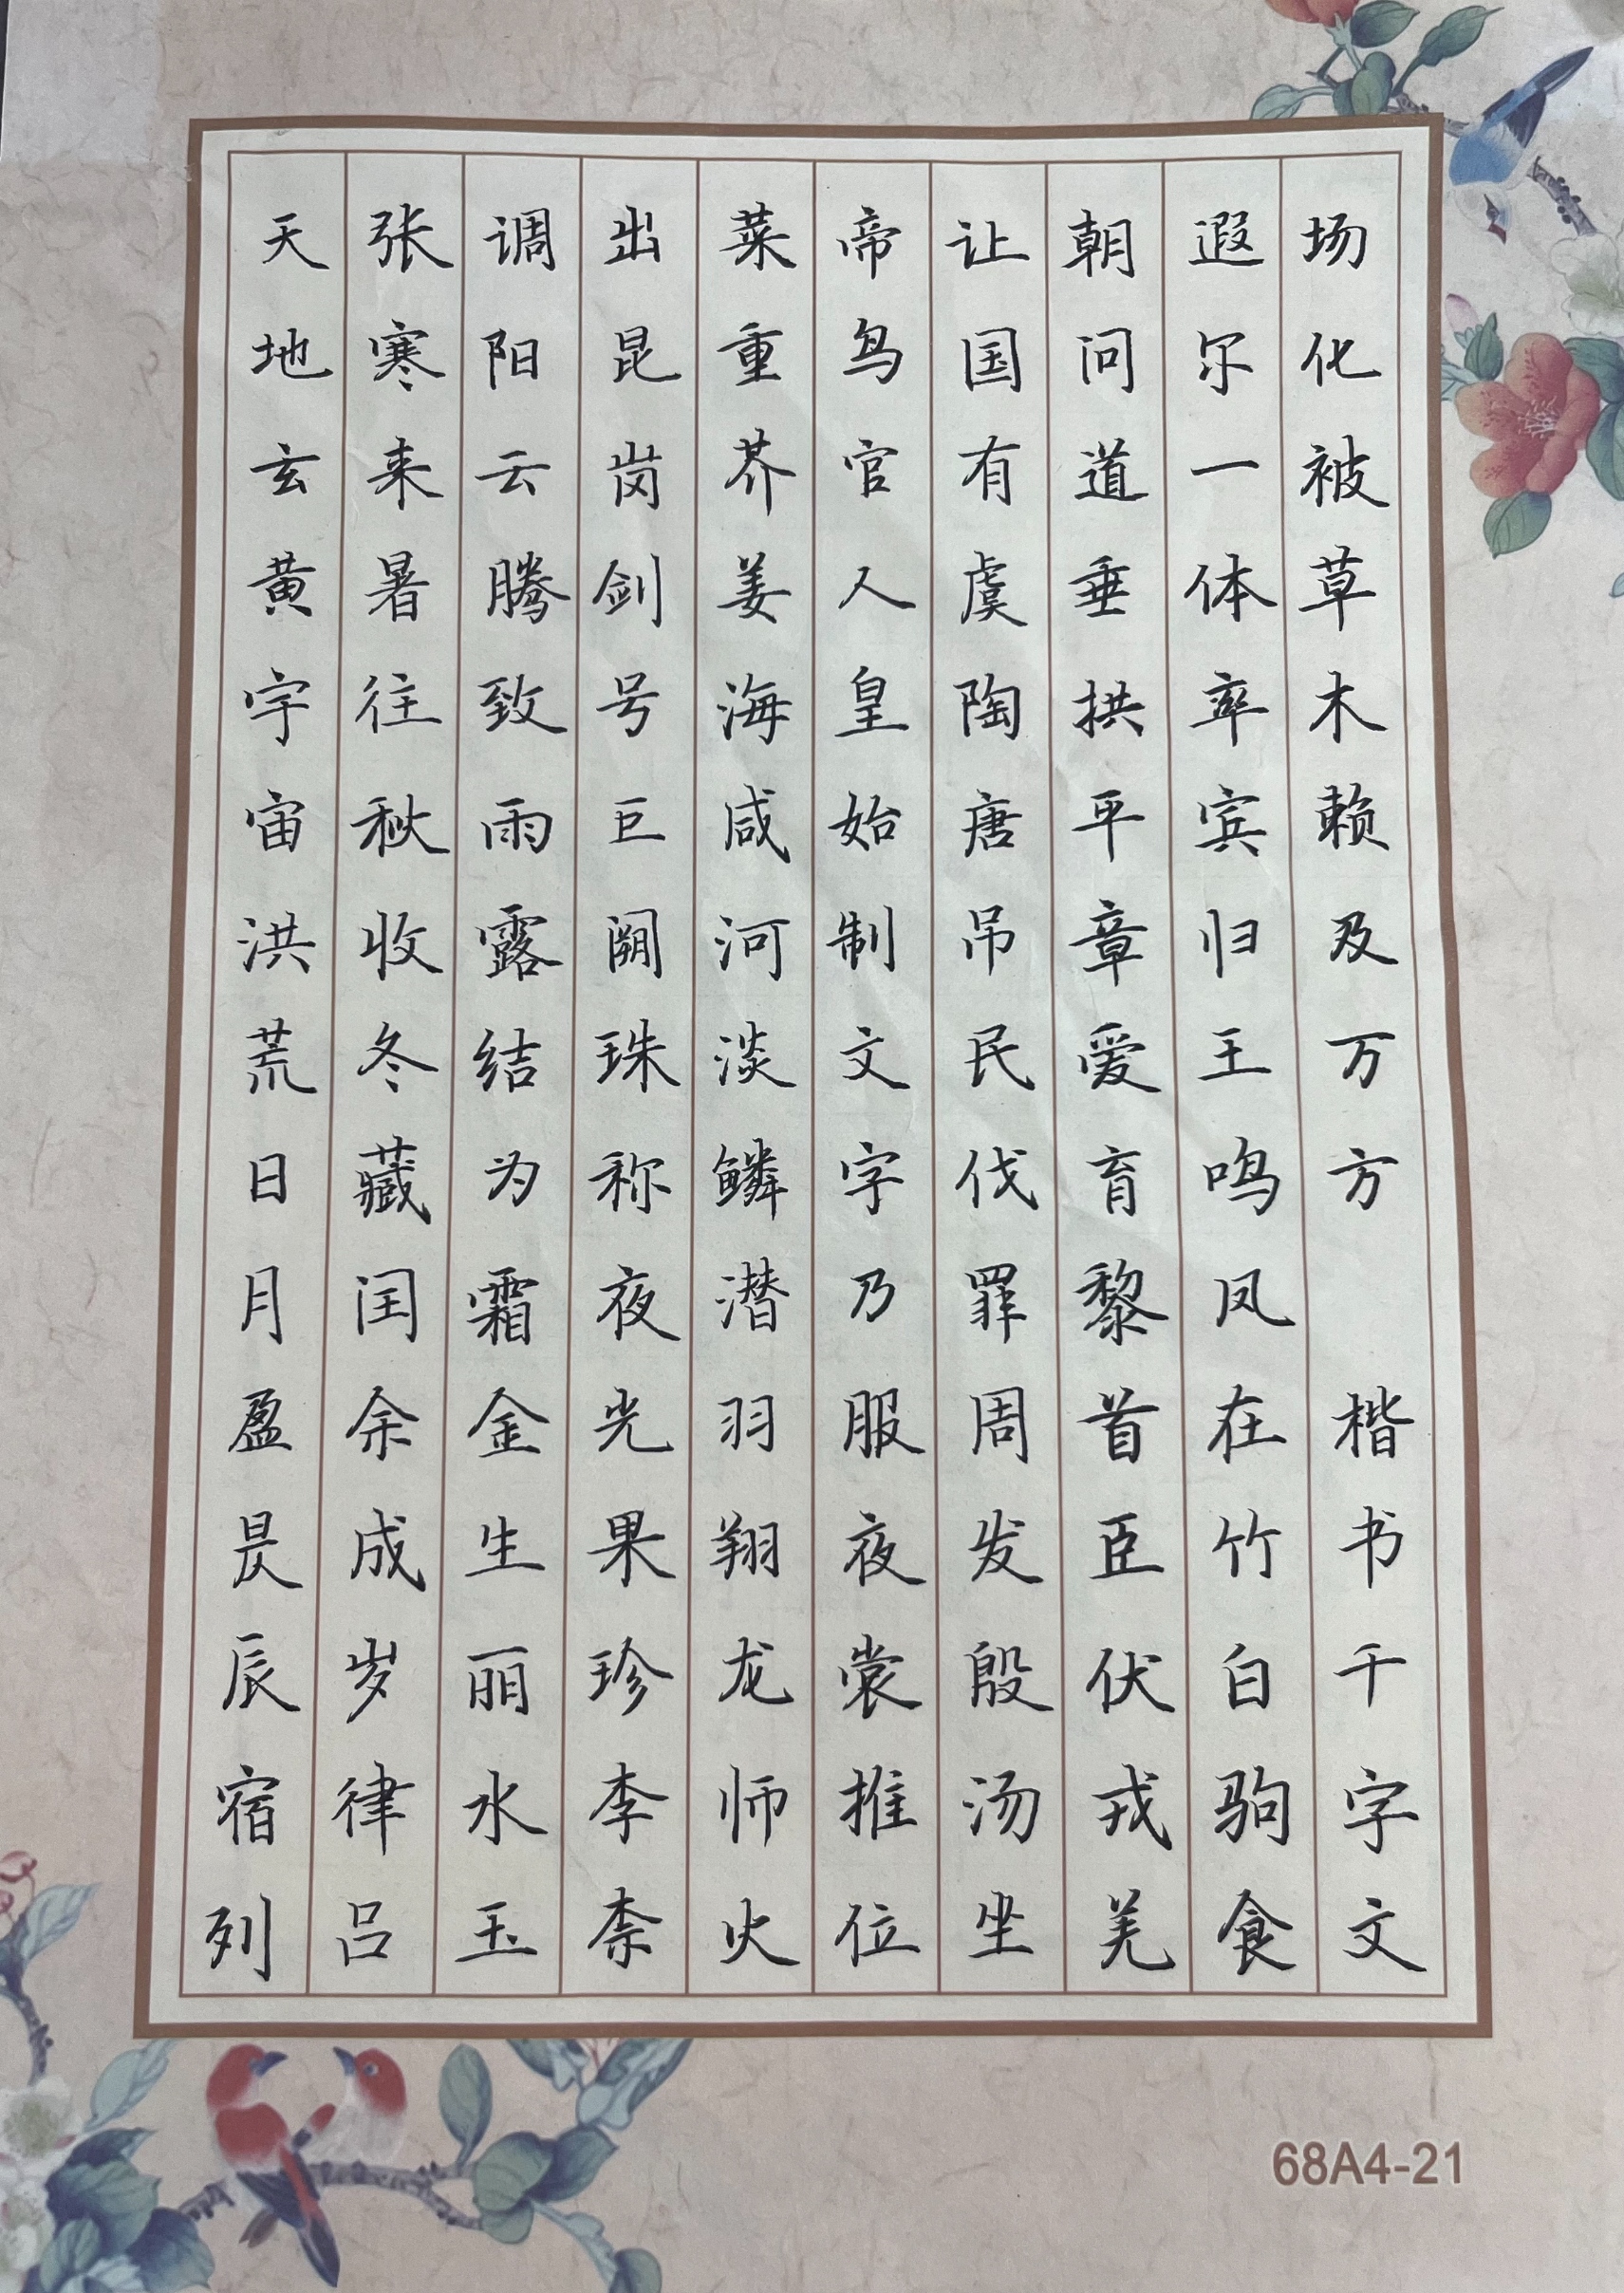 天地玄黄宇宙洪荒日月盈昃辰宿列
张寒来暑往秋收冬藏闰余成岁律吕
调阳云腾致雨露结为霜金生丽水玉
出昆岗剑号巨阙珠称夜光果珍李柰
菜重芥姜海咸河淡鳞潜羽翔龙师火
帝鸟官人皇始制文字乃服夜裳推位
让国有虞陶唐吊民伐罪周发殷汤坐
朝问道垂拱平章爱育黎首臣伏戎羌
遐尔一体率宾归王鸣凤在竹白驹食
场化被草木赖及万方 楷书千字文
68A4-21